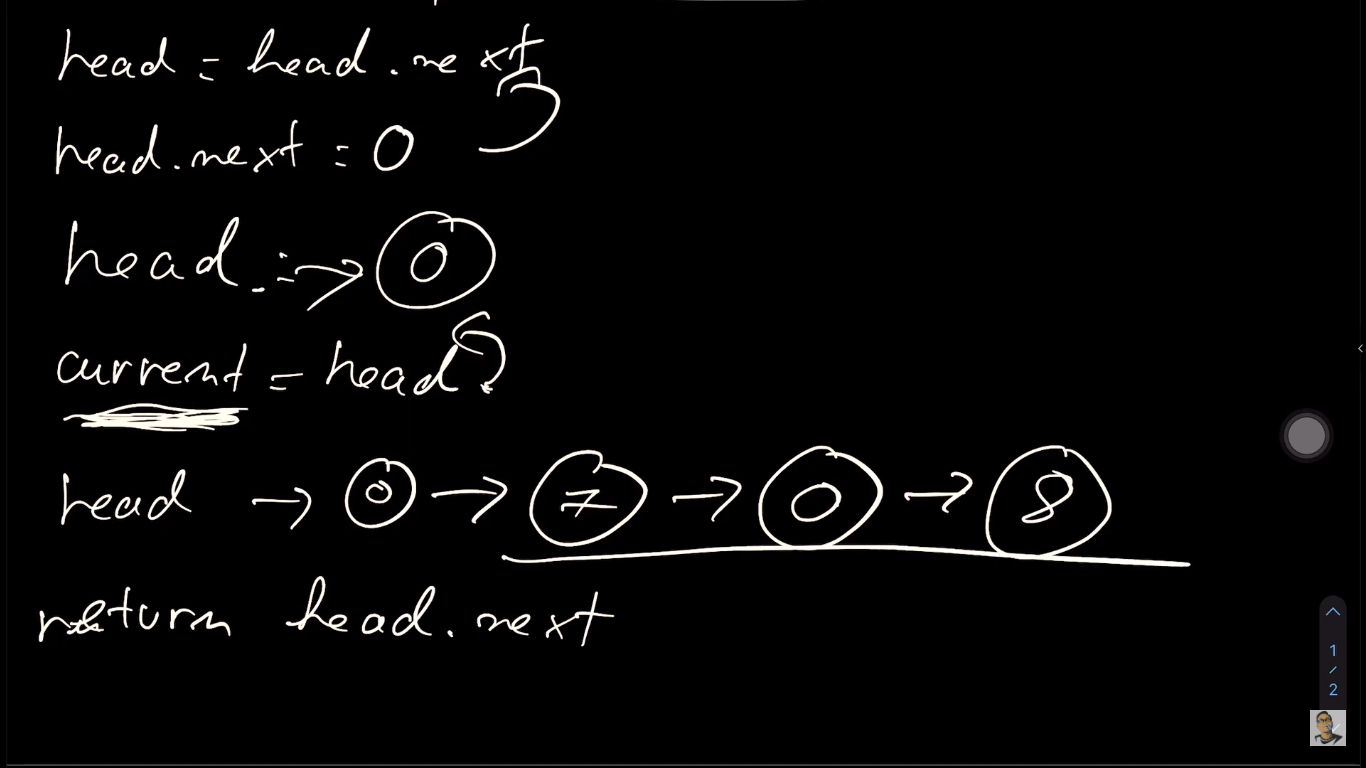 head = head.next
head.next = 0
head.=→ 0
current = head
head → 0 → 7 → 0 → 8
return head.next
1
/
2